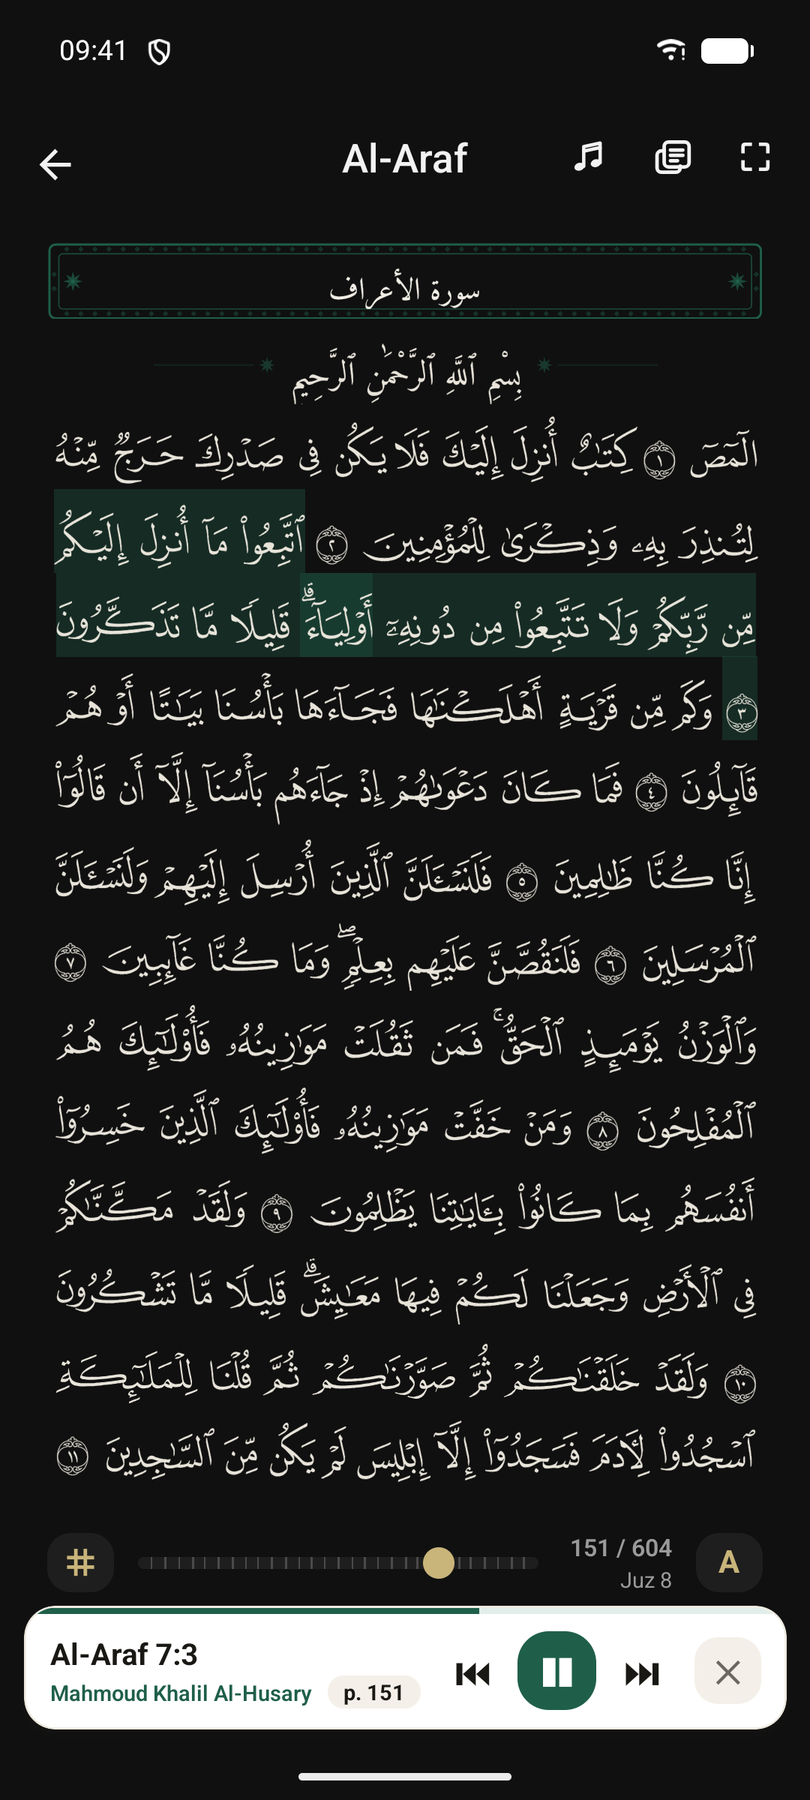 09:41
Al-Araf
سورة الأعراف
بِسْمِ ٱللَّهِ ٱلرَّحْمَٰنِ ٱلرَّحِيمِ
الٓمٓصٓ ١ كِتَٰبٌ أُنزِلَ إِلَيْكَ فَلَا يَكُن فِى صَدْرِكَ حَرَجٌ مِّنْهُ
لِتُنذِرَ بِهِۦ وَذِكْرَىٰ لِلْمُؤْمِنِينَ ٢ ٱتَّبِعُوا۟ مَآ أُنزِلَ إِلَيْكُم
مِّن رَّبِّكُمْ وَلَا تَتَّبِعُوا۟ مِن دُونِهِۦٓ أَوْلِيَآءَ ۗ قَلِيلًا مَّا تَذَكَّرُونَ
٣ وَكَم مِّن قَرْيَةٍ أَهْلَكْنَٰهَا فَجَآءَهَا بَأْسُنَا بَيَٰتًا أَوْ هُمْ
قَآئِلُونَ ٤ فَمَا كَانَ دَعْوَىٰهُمْ إِذْ جَآءَهُم بَأْسُنَآ إِلَّآ أَن قَالُوٓا۟
إِنَّا كُنَّا ظَٰلِمِينَ ٥ فَلَنَسْـَٔلَنَّ ٱلَّذِينَ أُرْسِلَ إِلَيْهِمْ وَلَنَسْـَٔلَنَّ
ٱلْمُرْسَلِينَ ٦ فَلَنَقُصَّنَّ عَلَيْهِم بِعِلْمٍ ۖ وَمَا كُنَّا غَآئِبِينَ ٧
وَٱلْوَزْنُ يَوْمَئِذٍ ٱلْحَقُّ ۚ فَمَن ثَقُلَتْ مَوَٰزِينُهُۥ فَأُو۟لَٰٓئِكَ هُمُ
ٱلْمُفْلِحُونَ ٨ وَمَنْ خَفَّتْ مَوَٰزِينُهُۥ فَأُو۟لَٰٓئِكَ ٱلَّذِينَ خَسِرُوٓا۟
أَنفُسَهُم بِمَا كَانُوا۟ بِـَٔايَٰتِنَا يَظْلِمُونَ ٩ وَلَقَدْ مَكَّنَّٰكُمْ
فِى ٱلْأَرْضِ وَجَعَلْنَا لَكُمْ فِيهَا مَعَٰيِشَ ۗ قَلِيلًا مَّا تَشْكُرُونَ
١٠ وَلَقَدْ خَلَقْنَٰكُمْ ثُمَّ صَوَّرْنَٰكُمْ ثُمَّ قُلْنَا لِلْمَلَٰٓئِكَةِ
ٱسْجُدُوا۟ لِـَٔادَمَ فَسَجَدُوٓا۟ إِلَّآ إِبْلِيسَ لَمْ يَكُن مِّنَ ٱلسَّٰجِدِينَ ١١
151 / 604
A
Juz 8
Al-Araf 7:3
Mahmoud Khalil Al-Husary p. 151